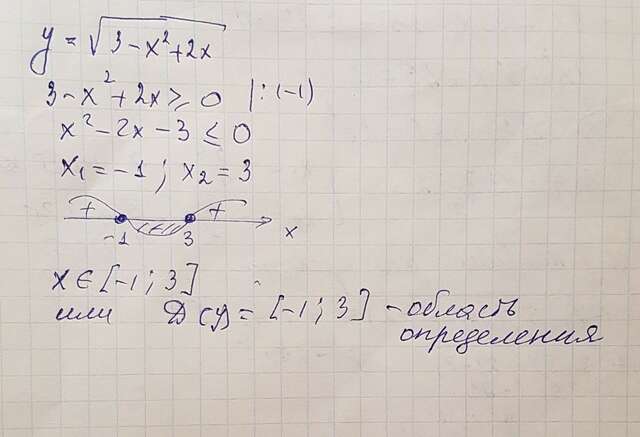 y = √3 - x² + 2x
3 - x² + 2x ≥ 0 | : (-1)
x² - 2x - 3 ≤ 0
x₁ = -1 ; x₂ = 3
+ (-) +
-1 3 x
x ∈ [-1 ; 3]
или D(y) = [-1 ; 3] - область
определения